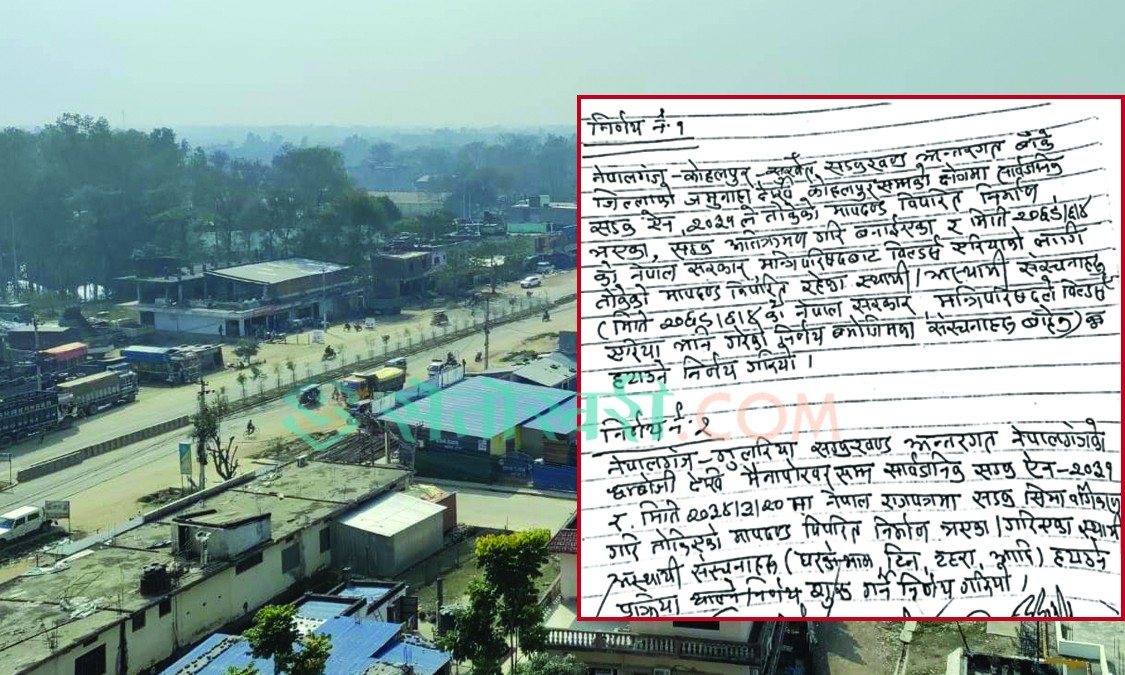 निर्णय नं. १
नेपालगंज-कोहलपुर-सुर्खेत सडकखण्ड अन्तरगत बाँके
जिल्लाको जमुनाहा देखि कोहलपुर सम्मको क्षेत्रमा सार्वजनिक
सडक ऐन, २०३१ ले तोकेको मापदण्ड विपरित निर्माण
भएका, सडक अतिक्रमण गरि बनाईएका र मिति २०६५/६/४
का नेपाल सरकार मन्त्रिपरिषदबाट विल्डर्स एरियाको लागी
तोकेको मापदण्ड विपरित रहेका स्थायी/अस्थायी संरचनाहरु
(मिति २०६५/६/४ का नेपाल सरकार मन्त्रिपरिषदले विल्डर्स
एरिया भनि गरेको निर्णय बमोजिमका संरचनाहरु बाहेक)
हटाउने निर्णय गरियो ।
सेतोखरी.COM
निर्णय नं. २
नेपालगंज-गुलरिया सडकखण्ड अन्तरगत नेपालगंजको
देखि मैनापोखर सम्म सार्वजनिक सडक ऐन-२०३१
र मिति २०३४/३/२० मा नेपाल राजपत्रमा सडक सिमा
गरि तोकिएको मापदण्ड विपरित निर्माण भएका/गरिएका स्थायी
अस्थायी संरचनाहरु (पर्खाल, टिन, टहरा, आदि) हटाउने
निर्णय गरियो ।